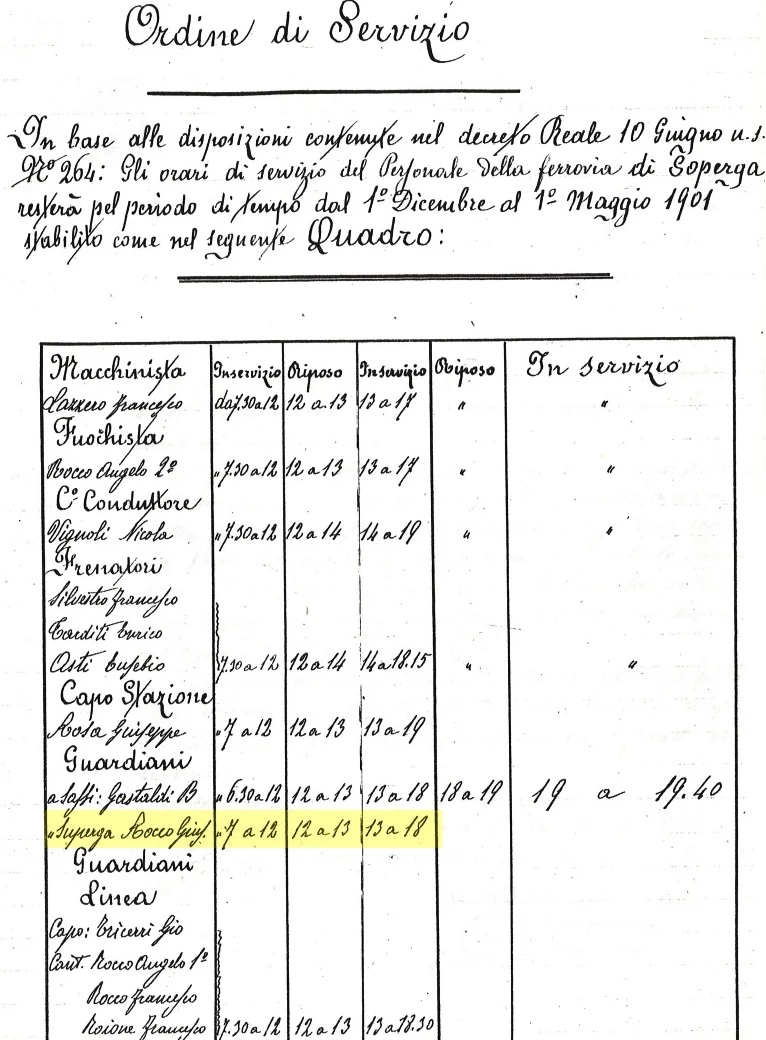 Ordine di Servizio
In base alle disposizioni contenute nel decreto Reale 10 Giugno u.s.
Nº 264: Gli orari di servizio del Personale della ferrovia di Soperga
resterà pel periodo di tempo dal 1º Dicembre al 1º Maggio 1901
stabilito come nel seguente Quadro:
Macchinista Inservizio Riposo Inservizio Riposo In servizio
Lazzero Francesco da 7.30 a 12 12 a 13 13 a 17 " "
Fuochista
Rocco Angelo 2º " 7.30 a 12 12 a 13 13 a 17 " "
Cº Conduttore
Vignoli Nicola " 7.30 a 12 12 a 14 14 a 19 " "
Frenatori
Silvestro Francesco
Tarditi Enrico
Asti Eusebio 7.30 a 12 12 a 14 14 a 18.15 " "
Capo Stazione
Rosa Giuseppe " 7 a 12 12 a 13 13 a 19
Guardiani
a Sassi: Gastaldi B " 6.30 a 12 12 a 13 13 a 18 18 a 19 19 a 19.40
" Superga Rocco Gius. " 7 a 12 12 a 13 13 a 18
Guardiani
Linea
Capo: Tricerri Gio
Cant. Rocco Angelo 1º
Rocco Francesco
Roione Francesco 7.30 a 12 12 a 13 13 a 18.30